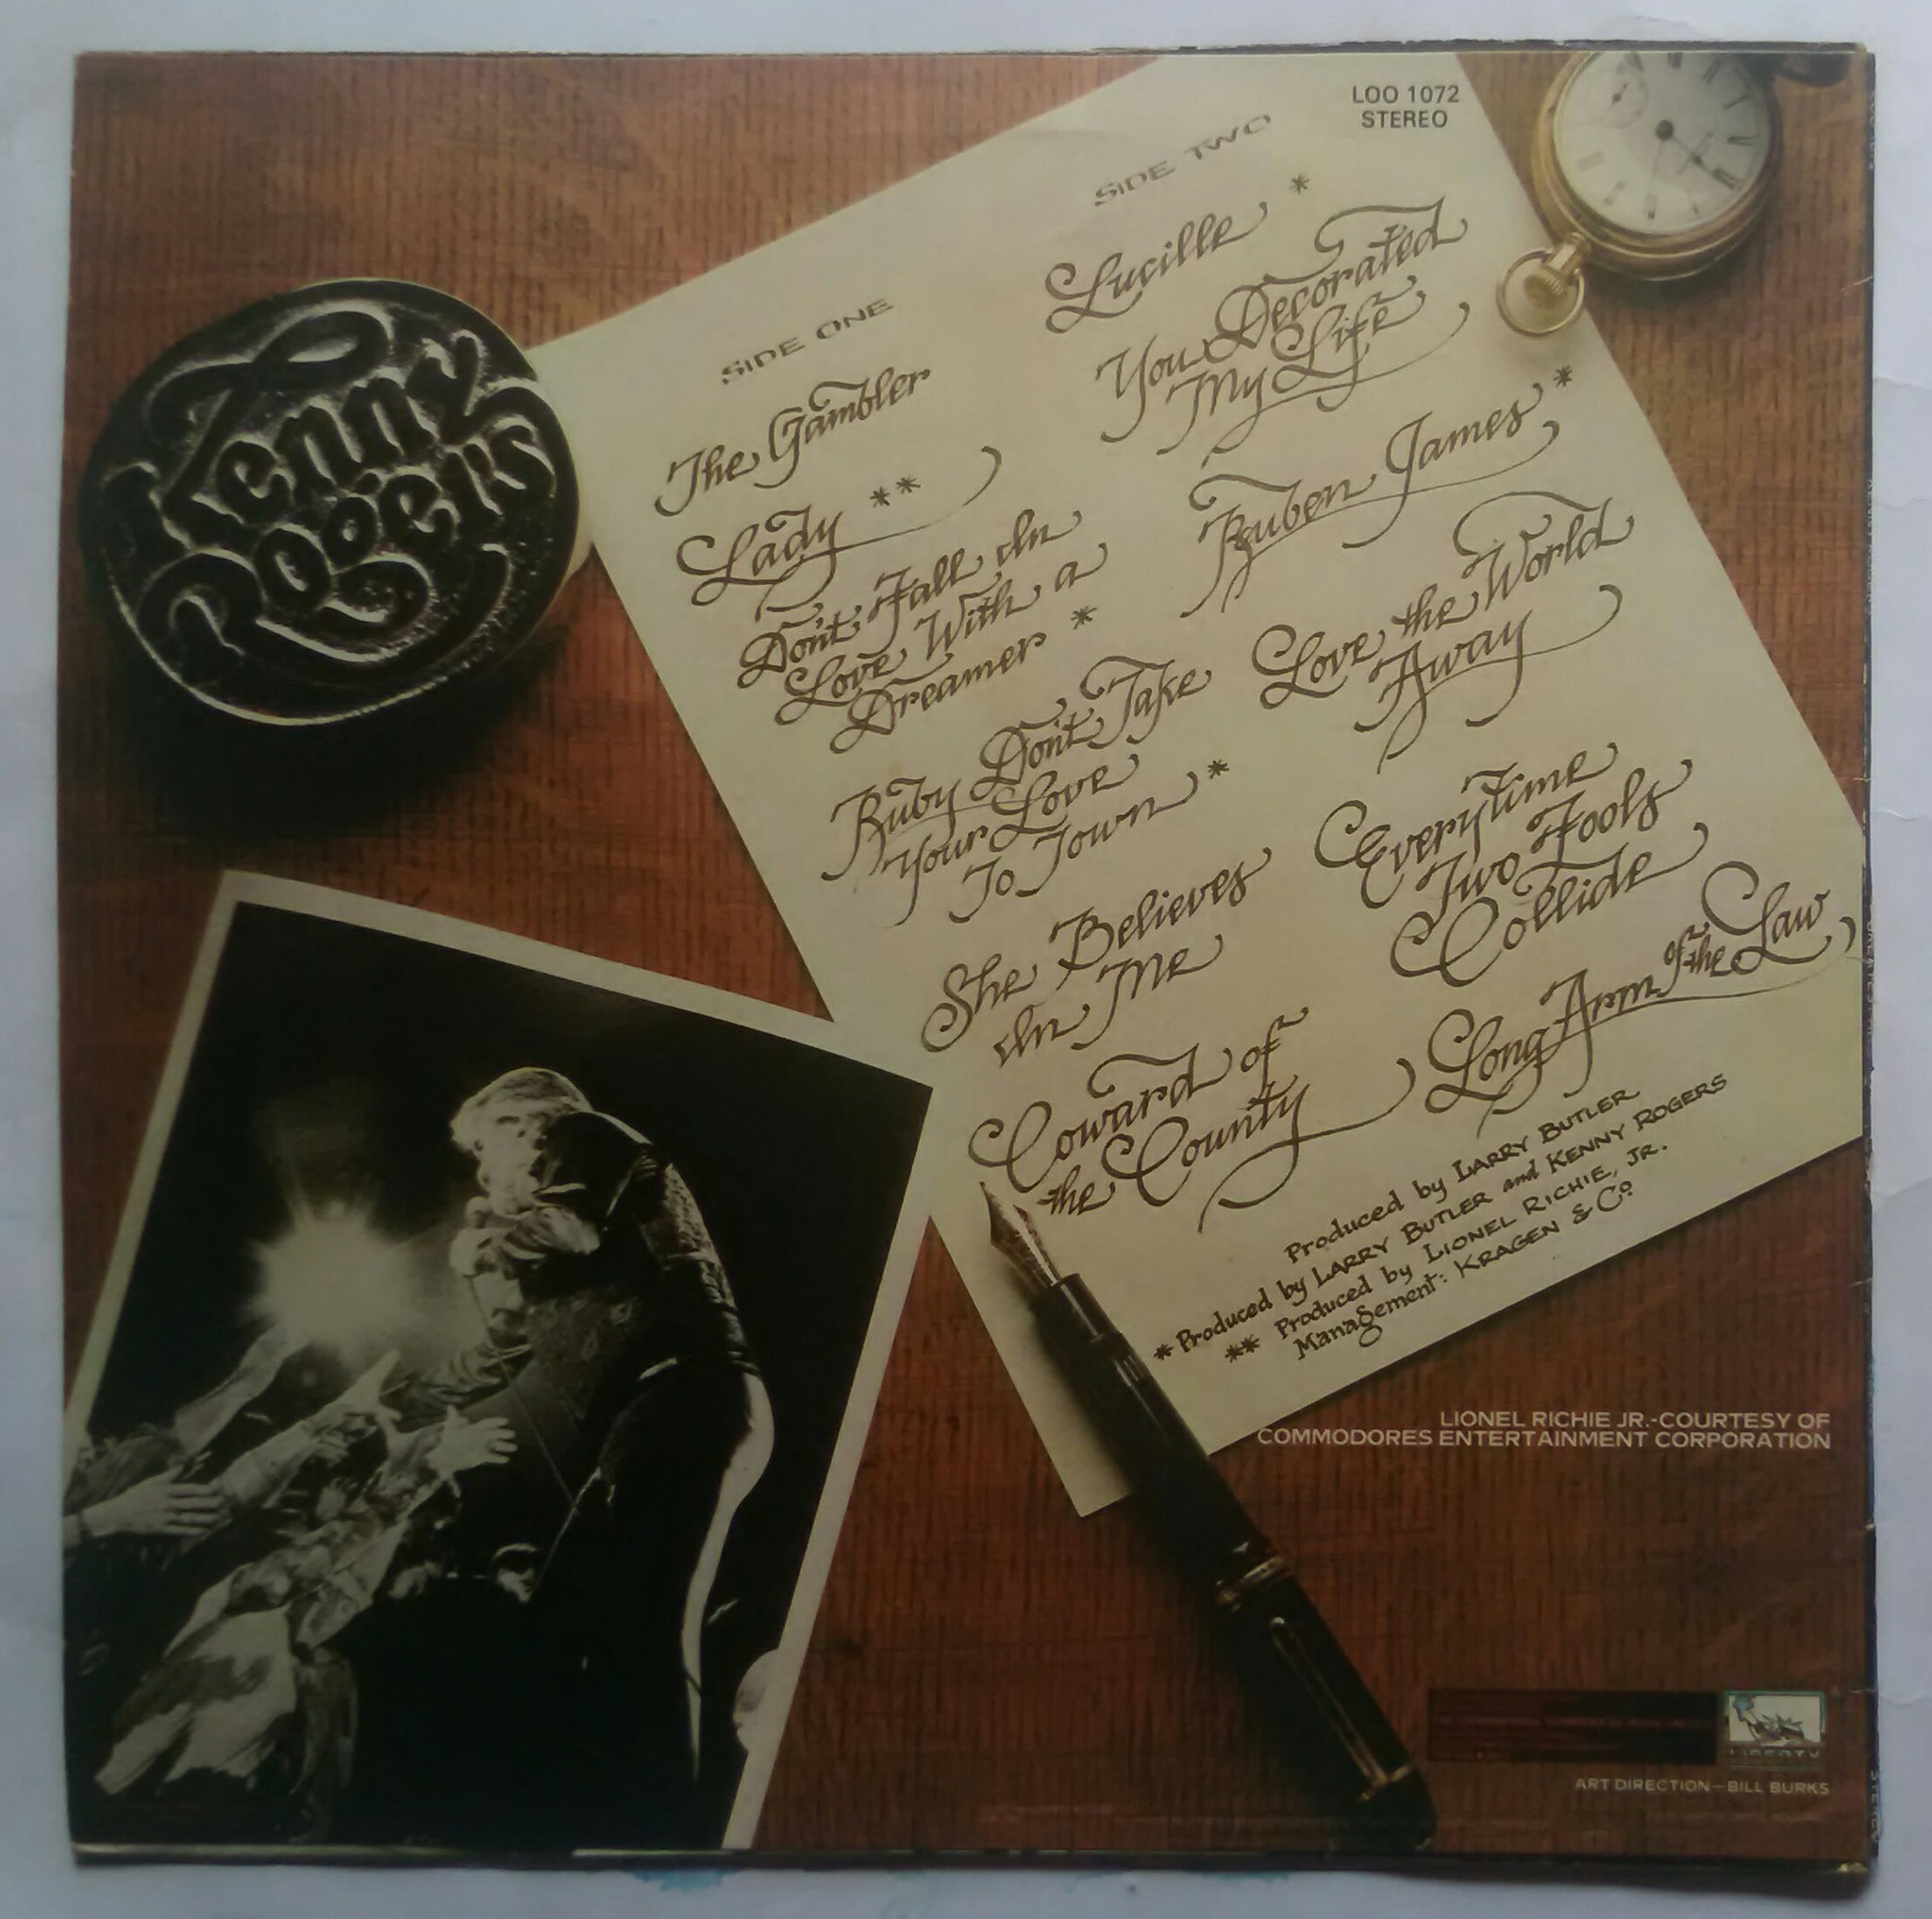 LOO 1072
STEREO
Kenny
Rogers
SIDE ONE
The Gambler
Lady **
Don't Fall In
Love With a
Dreamer *
Ruby Don't Take
Your Love
To Town *
She Believes
In Me
Coward of
the County
SIDE TWO
Lucille *
You Decorated
My Life
Ruben James *
Love the World
Away
Everytime
Two Fools
Collide
Long Arm of the Law
Produced by LARRY BUTLER
* Produced by LARRY BUTLER and KENNY ROGERS
** Produced by LIONEL RICHIE, JR.
Management: KRAGEN & Co
LIONEL RICHIE JR.-COURTESY OF
COMMODORES ENTERTAINMENT CORPORATION
LIBERTY
ART DIRECTION - BILL BURKS
STEREO